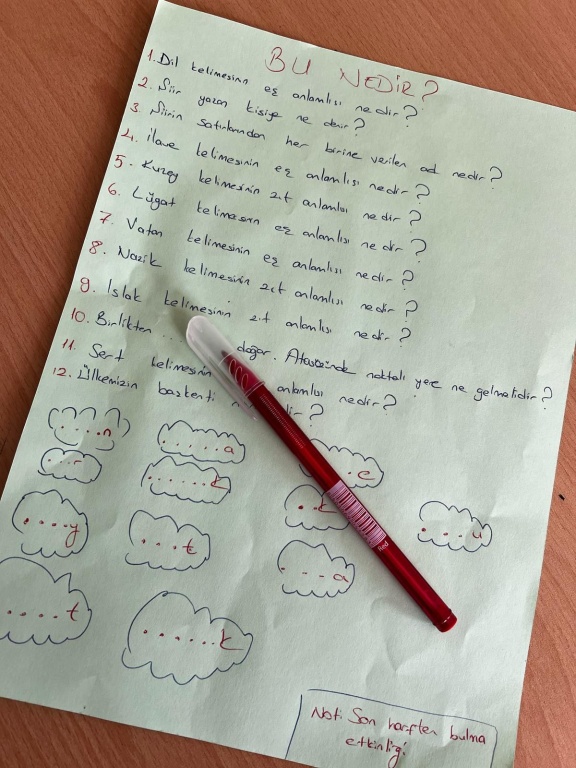 BU NEDİR?
1. Dil kelimesinin eş anlamlısı nedir?
2. Şiir yazan kişiye ne denir?
3. Şiirin satırlarından her birine verilen ad nedir?
4. İlave kelimesinin eş anlamlısı nedir?
5. Kuzey kelimesinin zıt anlamlısı nedir?
6. Lügat kelimesinin eş anlamlısı nedir?
7. Vatan kelimesinin eş anlamlısı nedir?
8. Nazik kelimesinin zıt anlamlısı nedir?
9. Islak kelimesinin zıt anlamlısı nedir?
10. Birlikten ... doğar. Atasözünde noktalı yere ne gelmelidir?
11. Sert kelimesinin anlamlısı nedir?
12. Ülkemizin başkenti
....n
.....a
.e
...r
......k
.k
...u
....y
....t
...a
....t
......k
Red
Not: Son harften bulma
etkinliği